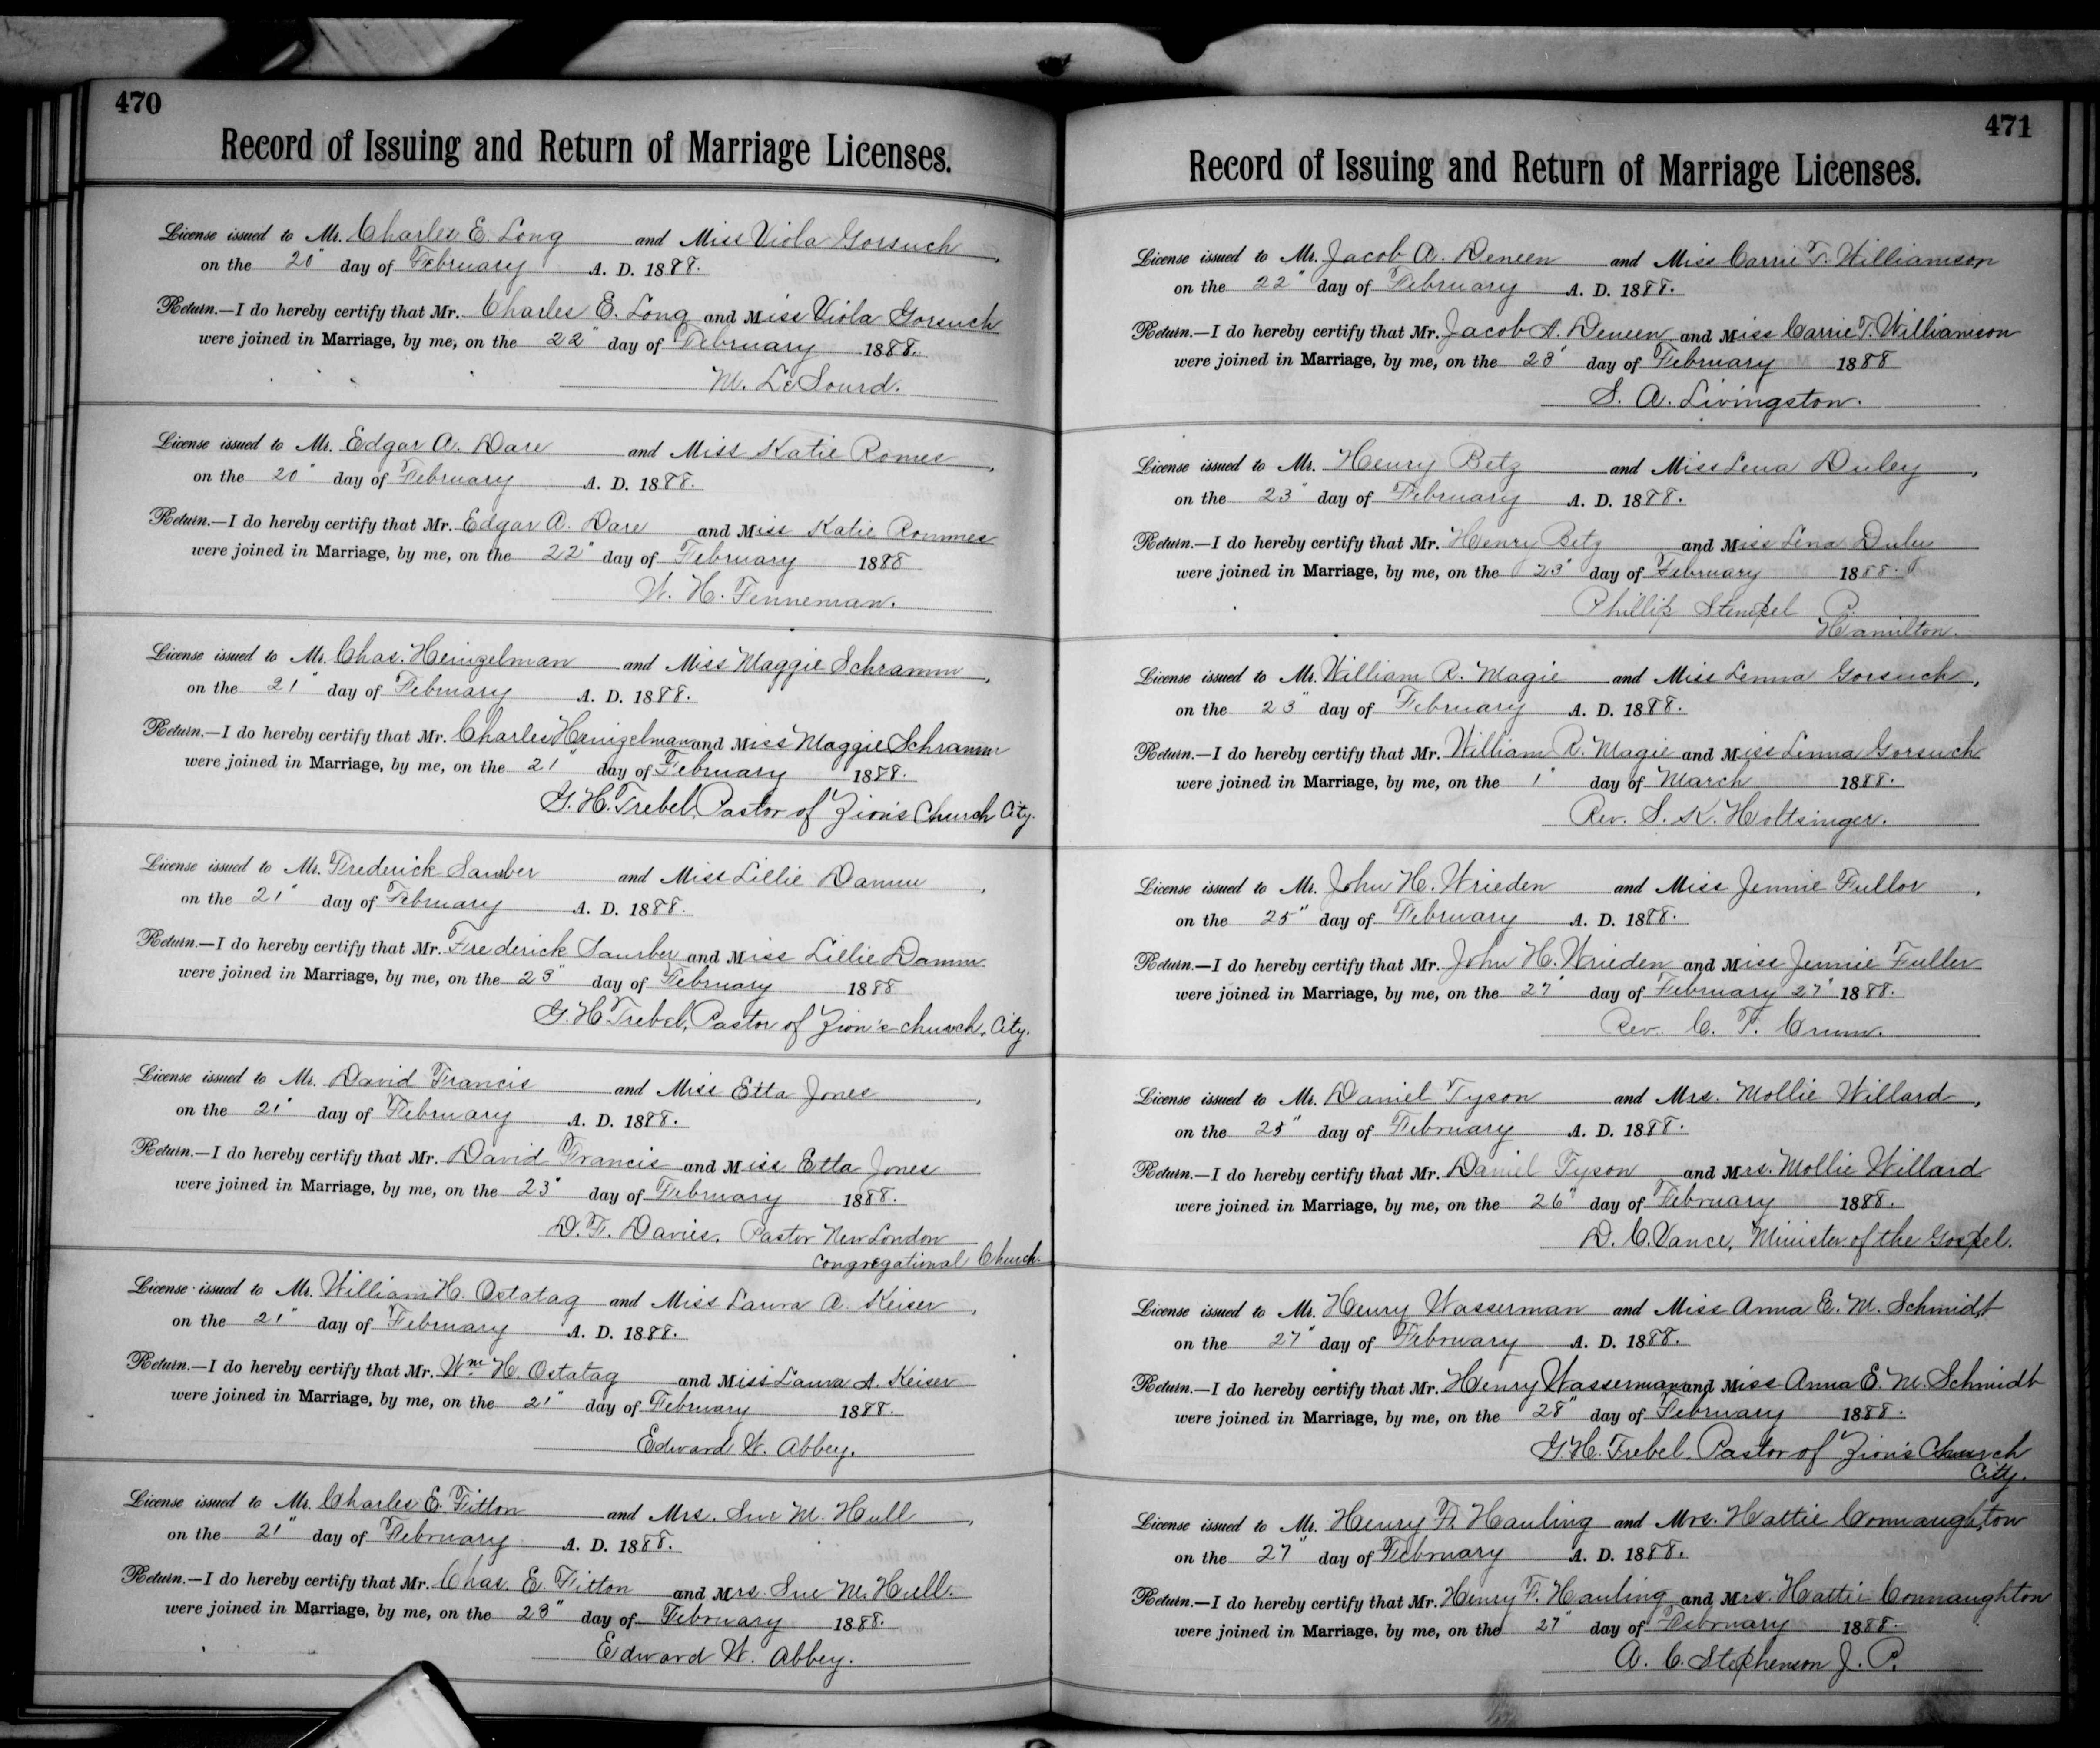 470
Record of Issuing and Return of Marriage Licenses.
License issued to Mr. Charles E. Long and Miss Viola Gorsuch,
on the 20" day of February A. D. 1888.
Return.—I do hereby certify that Mr. Charles E. Long and Miss Viola Gorsuch
were joined in Marriage, by me, on the 22" day of February 1888.
M. LeSourd.
License issued to Mr. Edgar A. Dare and Miss Katie Romes,
on the 20" day of February A. D. 1888.
Return.—I do hereby certify that Mr. Edgar A. Dare and Miss Katie Rommes
were joined in Marriage, by me, on the 22" day of February 1888
W. H. Fenneman.
License issued to Mr. Chas. Heinzelman and Miss Maggie Schramm,
on the 21" day of February A. D. 1888.
Return.—I do hereby certify that Mr. Charles Heinzelman and Miss Maggie Schramm
were joined in Marriage, by me, on the 21" day of February 1888.
G. H. Trebel, Pastor of Zion's Church City.
License issued to Mr. Frederick Sauber and Miss Lillie Damm,
on the 21" day of February A. D. 1888.
Return.—I do hereby certify that Mr. Frederick Saurber and Miss Lillie Damm
were joined in Marriage, by me, on the 23" day of February 1888
G. H. Trebel, Pastor of Zion's church, City.
License issued to Mr. David Francis and Miss Etta Jones,
on the 21" day of February A. D. 1888.
Return.—I do hereby certify that Mr. David Francis and Miss Etta Jones
were joined in Marriage, by me, on the 23" day of February 1888.
D. F. Davies, Pastor New London
Congregational Church.
License issued to Mr. William H. Ostatag and Miss Laura A. Keiser,
on the 21" day of February A. D. 1888.
Return.—I do hereby certify that Mr. Wm. H. Ostatag and Miss Laura A. Keiser
were joined in Marriage, by me, on the 21" day of February 1888.
Edward W. Abbey.
License issued to Mr. Charles E. Fitton and Mrs. Sue M. Hull,
on the 21" day of February A. D. 1888.
Return.—I do hereby certify that Mr. Chas. E. Fitton and Mrs. Sue M. Hull.
were joined in Marriage, by me, on the 23" day of February 1888.
Edward W. Abbey.
471
Record of Issuing and Return of Marriage Licenses.
License issued to Mr. Jacob A. Deneen and Miss Carrie T. Williamson
on the 22" day of February A. D. 1888.
Return.—I do hereby certify that Mr. Jacob A. Deneen and Miss Carrie T. Williamson
were joined in Marriage, by me, on the 23" day of February 1888
S. A. Livingston.
License issued to Mr. Henry Betz and Miss Lena Duley,
on the 23" day of February A. D. 1888.
Return.—I do hereby certify that Mr. Henry Betz and Miss Lena Duley
were joined in Marriage, by me, on the 23" day of February 1888.
Phillip Stempel P.
Hamilton.
License issued to Mr. William R. Magie and Miss Lenna Gorsuch,
on the 23" day of February A. D. 1888.
Return.—I do hereby certify that Mr. William R. Magie and Miss Lenna Gorsuch
were joined in Marriage, by me, on the 1" day of March 1888.
Rev. S. K. Holtsinger.
License issued to Mr. John H. Wrieden and Miss Jennie Fullor,
on the 25" day of February A. D. 1888.
Return.—I do hereby certify that Mr. John H. Wrieden and Miss Jennie Fuller
were joined in Marriage, by me, on the 27" day of February 27" 1888.
Rev. C. F. Crum.
License issued to Mr. Daniel Tyson and Mrs. Mollie Willard,
on the 25" day of February A. D. 1888.
Return.—I do hereby certify that Mr. Daniel Tyson and Mrs. Mollie Willard
were joined in Marriage, by me, on the 26" day of February 1888.
D. C. Vance, Minister of the Gospel.
License issued to Mr. Henry Wasserman and Miss Anna E. M. Schmidt
on the 27" day of February A. D. 1888.
Return.—I do hereby certify that Mr. Henry Wasserman and Miss Anna E. M. Schmidt
were joined in Marriage, by me, on the 28" day of February 1888.
G. H. Trebel, Pastor of Zion's Church
City.
License issued to Mr. Henry F. Hauling and Mrs. Hattie Connaughton
on the 27" day of February A. D. 1888.
Return.—I do hereby certify that Mr. Henry F. Hauling and Mrs. Hattie Connaughton
were joined in Marriage, by me, on the 27" day of February 1888.
A. C. Stephenson J. P.